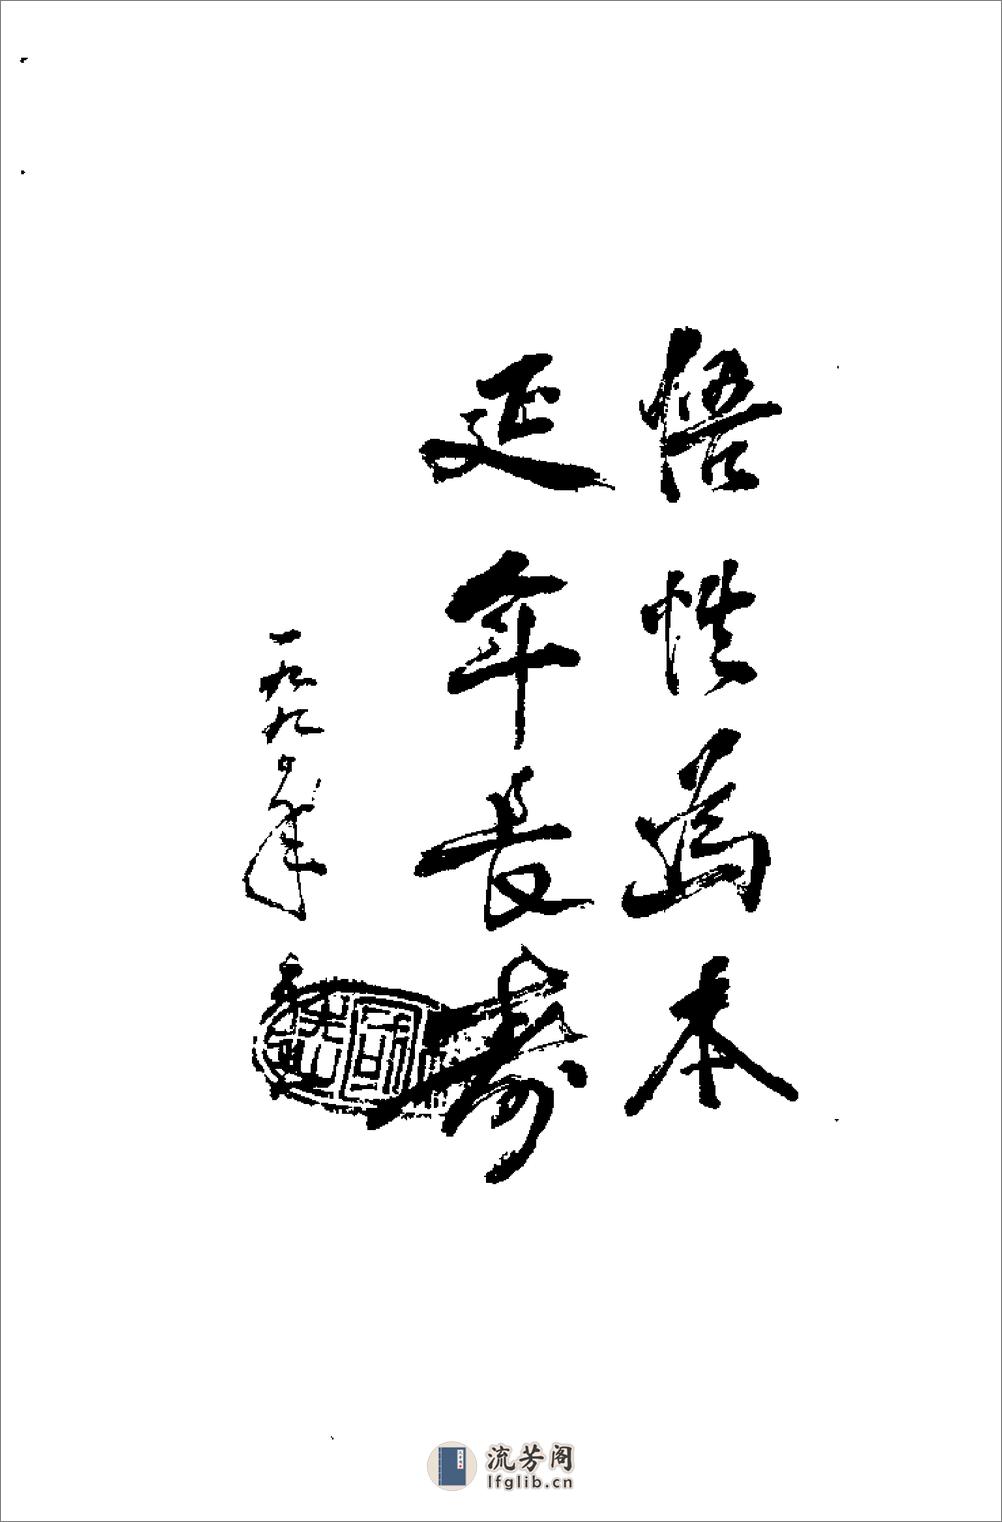 悟性為本
延年長寿
一九九〇年
流芳阁
lfglib.cn